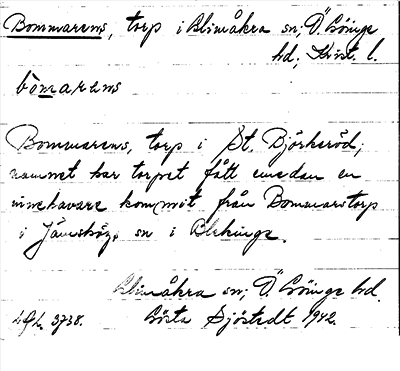 Bommarens, torp i Glimåkra sn; Ö. Göinge
hd; Krist. l.
bomarens
Bommarens, torp i St. Björkeröd;
namnet har torpet fått emedan en
innehavare kommit från Bommarstorp
i Jämshögs sn i Blekinge.
Glimåkra sn; Ö. Göinge hd.
3738. Gösta Sjöstedt 1942.